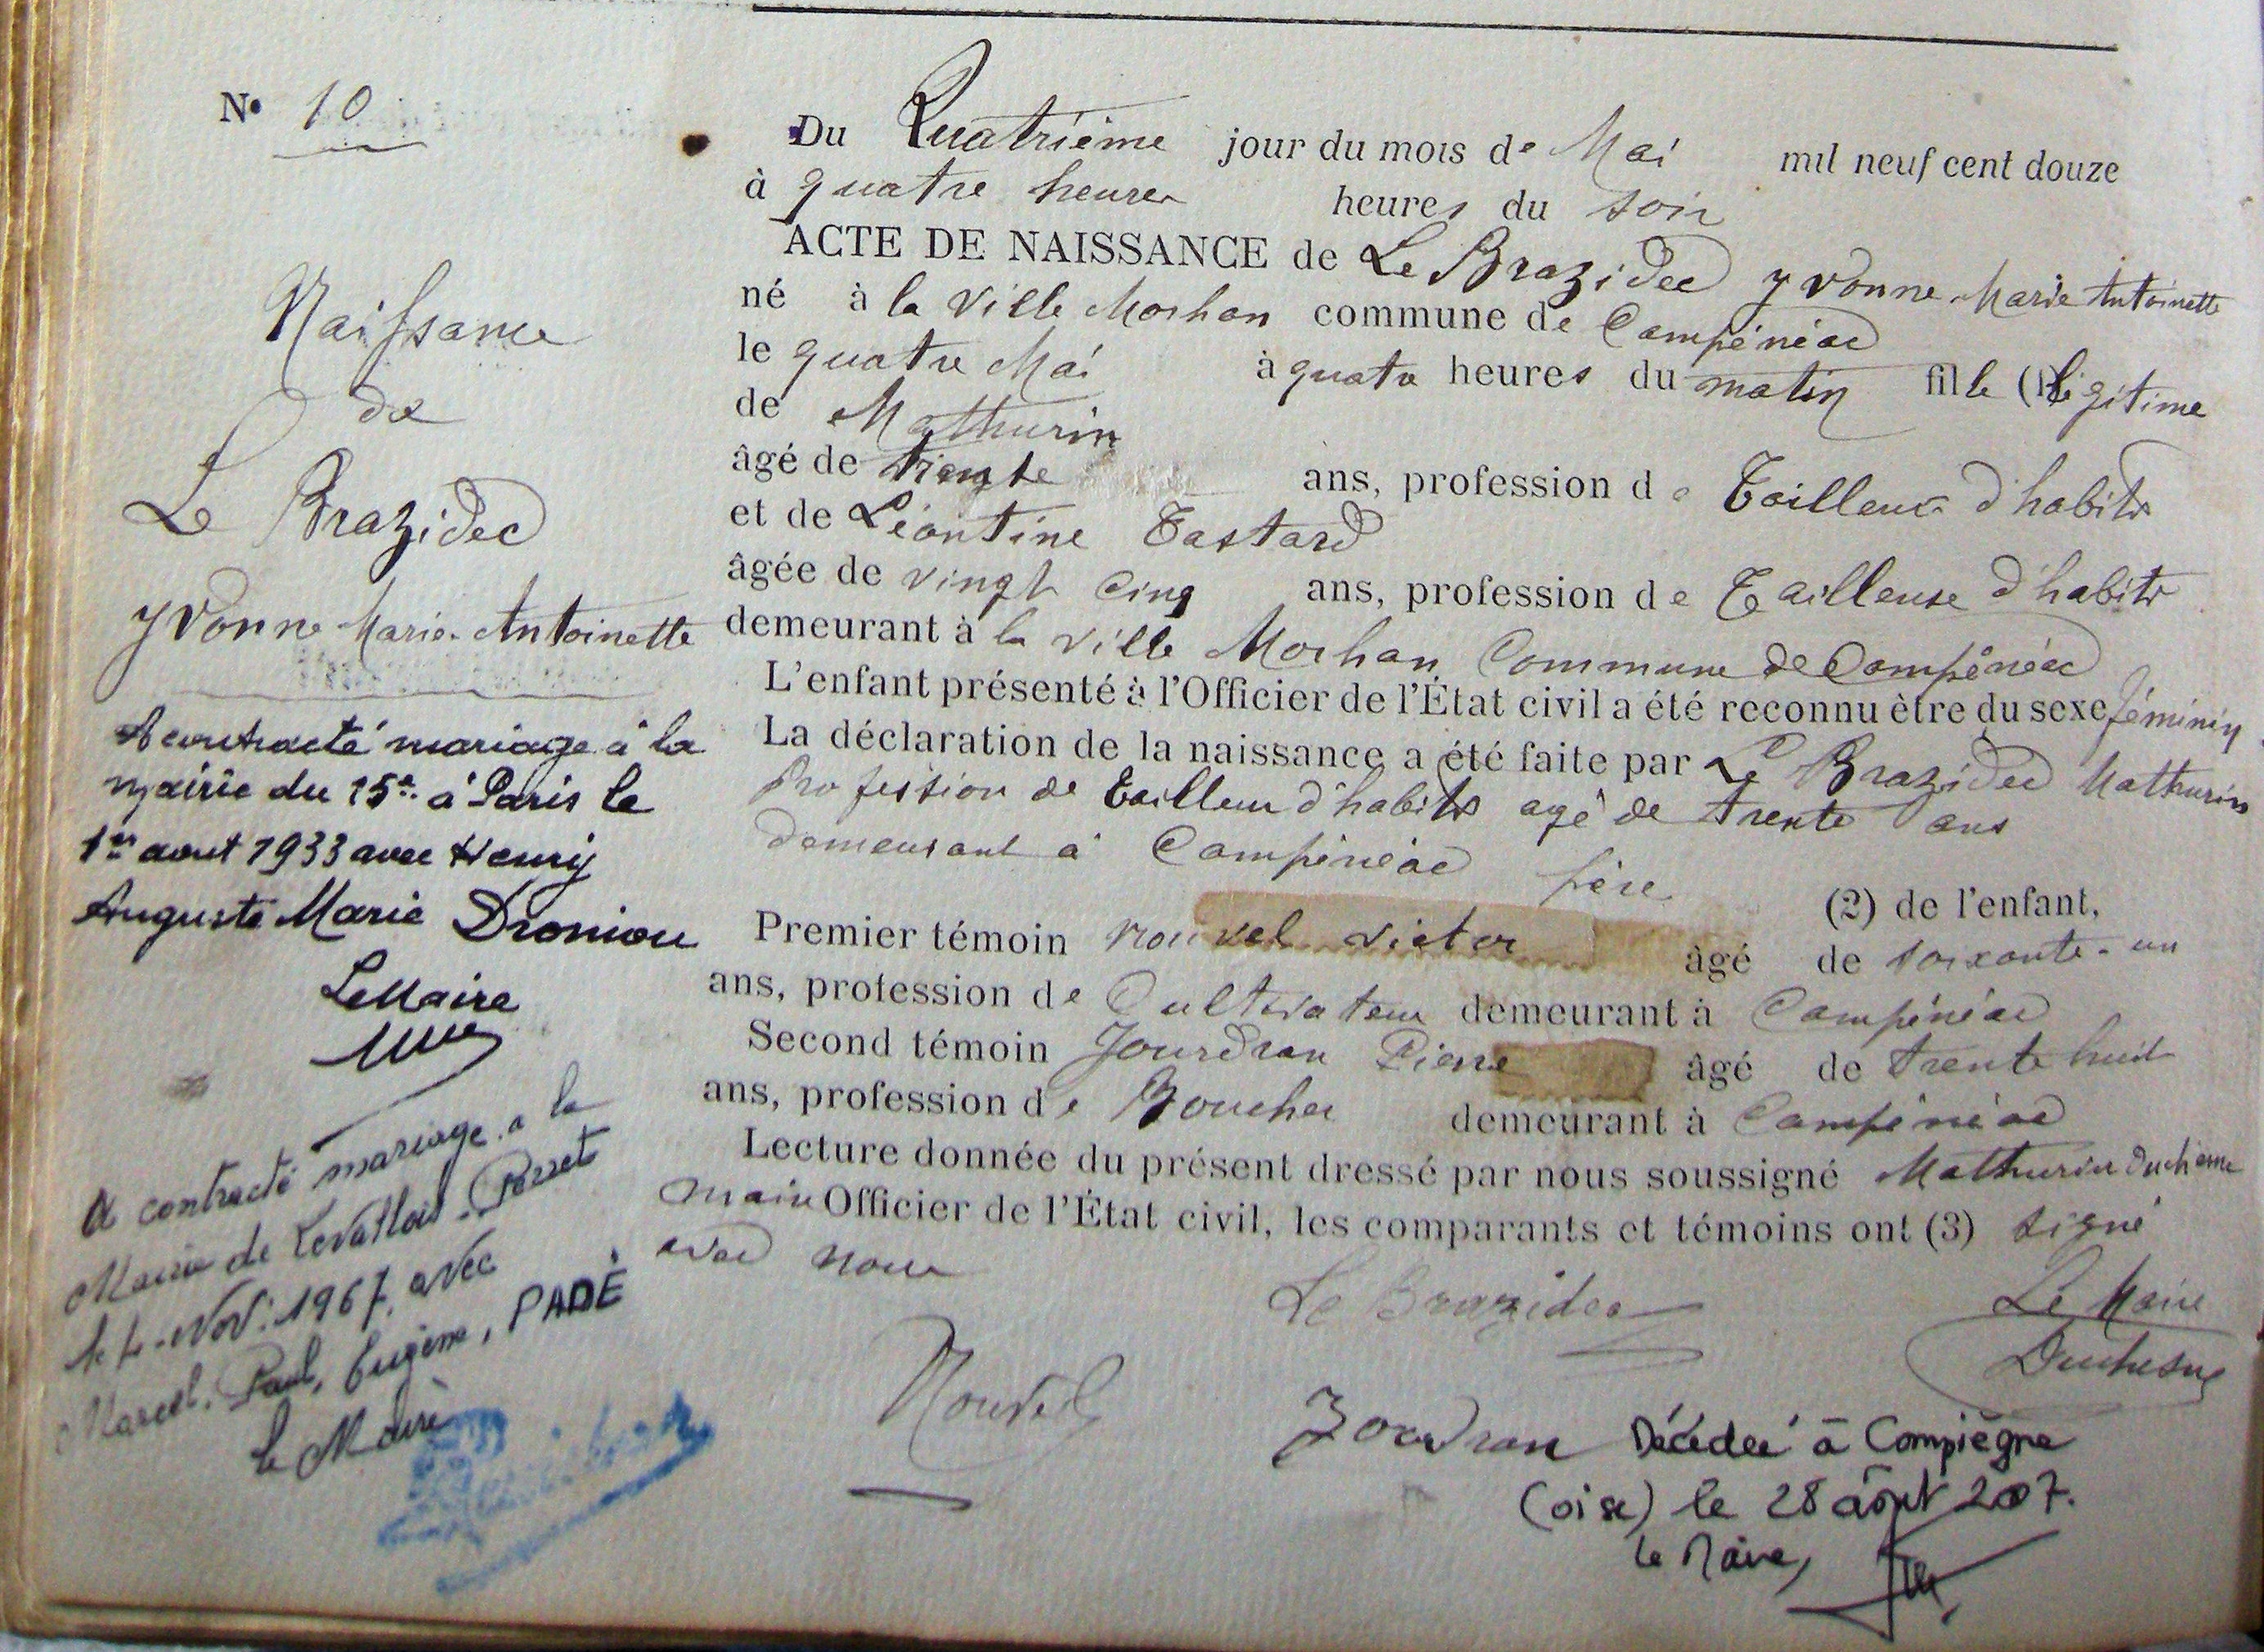 N° 10
Naissance
de
Le Brazidec
Yvonne Marie Antoinette
A contracté mariage à la
mairie du 15e à Paris le
1er aout 1933 avec Henry
Auguste Marie Droniou
Le Maire
A contracté mariage a la
Mairie de Levallois-Perret
le 4 Nov. 1967, avec
Marcel, Paul, Eugène, PADÉ
Le Maire
Du Quatrième jour du mois de Mai mil neuf cent douze
à quatre heures heures du soir
ACTE DE NAISSANCE de Le Brazidec Yvonne Marie Antoinette
né à la Ville Morhan commune de Campénéac
le quatre Mai à quatre heures du matin fille (1) légitime
de Mathurin
âgé de trente ans, profession de Tailleur d'habits
et de Léontine Tastard
âgée de vingt cinq ans, profession de Tailleuse d'habits
demeurant à la ville Morhan Commune de Campénéac
L'enfant présenté à l'Officier de l'État civil a été reconnu être du sexe féminin
La déclaration de la naissance a été faite par Le Brazidec Mathurin
Profession de tailleur d'habits agé de trente ans
demeurant à Campénéac père (2) de l'enfant,
Premier témoin nouvel victor âgé de soixante-un
ans, profession de Cultivateur demeurant à Campénéac
Second témoin Jourdran Pierre âgé de trente huit
ans, profession de Boucher demeurant à Campénéac
Lecture donnée du présent dressé par nous soussigné Mathurin Duchesne
maire Officier de l'État civil, les comparants et témoins ont (3) signé
avec nous
Le Brazidec
Le Maire
Duchesne
Nouvel
Jourdran
Décédée à Compiègne
(oise) le 28 août 2007.
Le Maire,